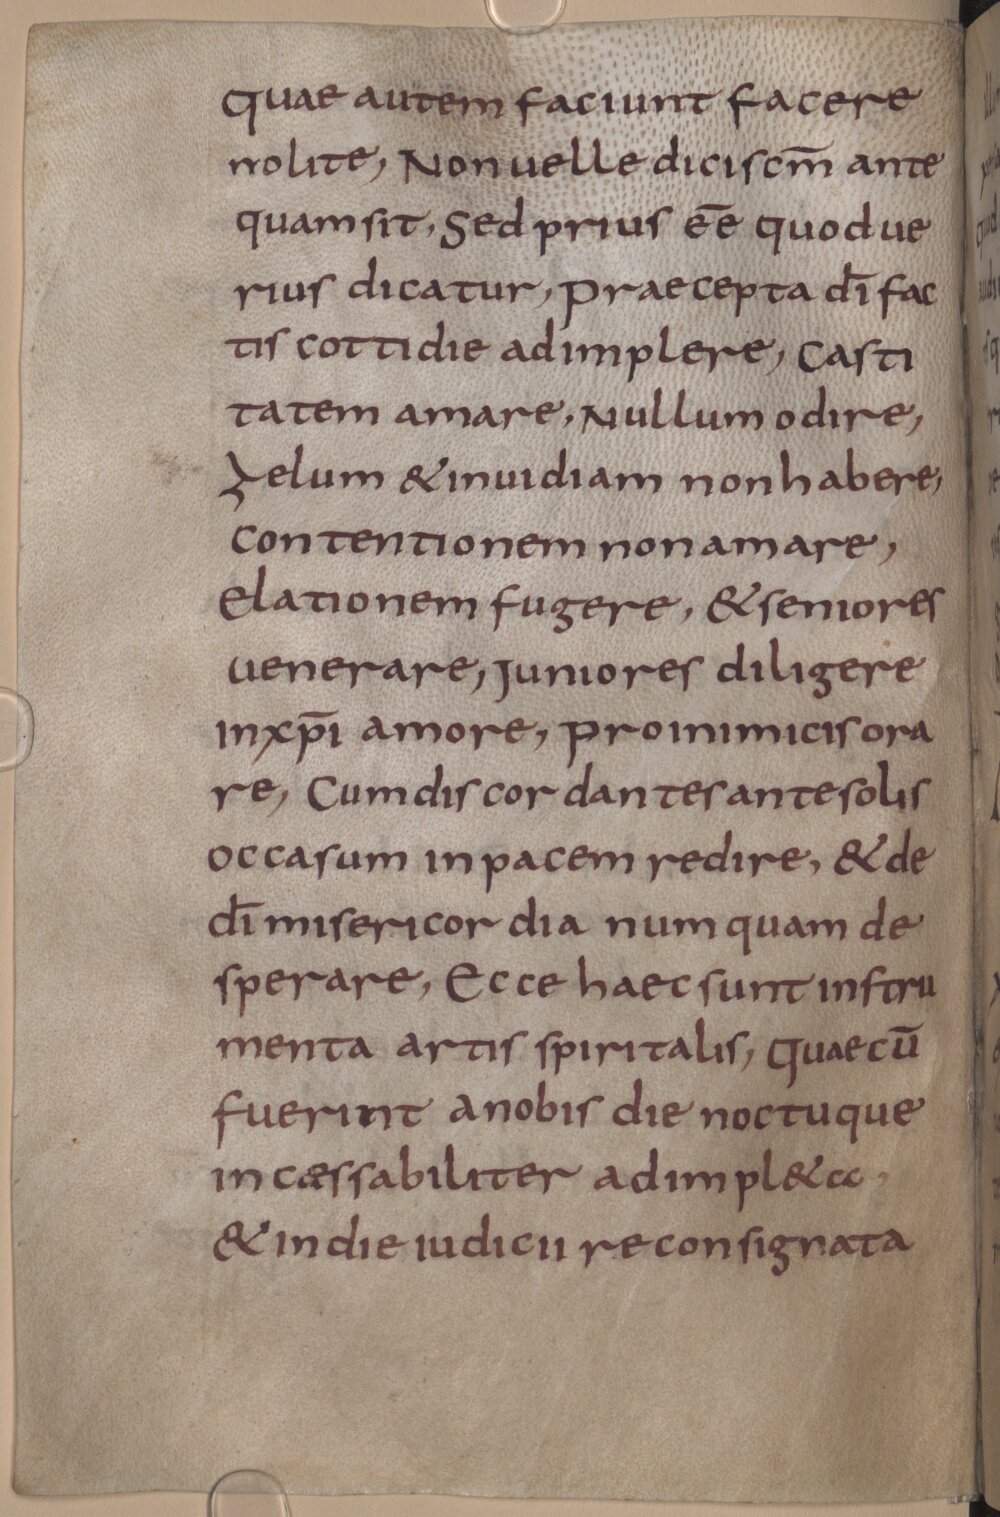 Quae autem faciunt facere
nolite, Non uelle dici scm̄ ante
quam sit, Sed prius eē̄ quod ue
rius dicatur, Praecepta dī fac
tis cottidie adimplere, Casti
tatem amare, Nullum odire,
Zelum & inuidiam non habere,
Contentionem non amare,
Elationem fugere, & seniores
uenerare, Juniores diligere
in xp̄i amore, Pro inimicis ora
re, Cum discordantes ante solis
occasum in pacem redire, & de
dī misericordia numquam de
sperare, Ecce haec sunt instru
menta artis spiritalis, Quae cū
fuerint a nobis die noctuque
incæssabiliter adimpl&a,
& in die iudicii reconsignata